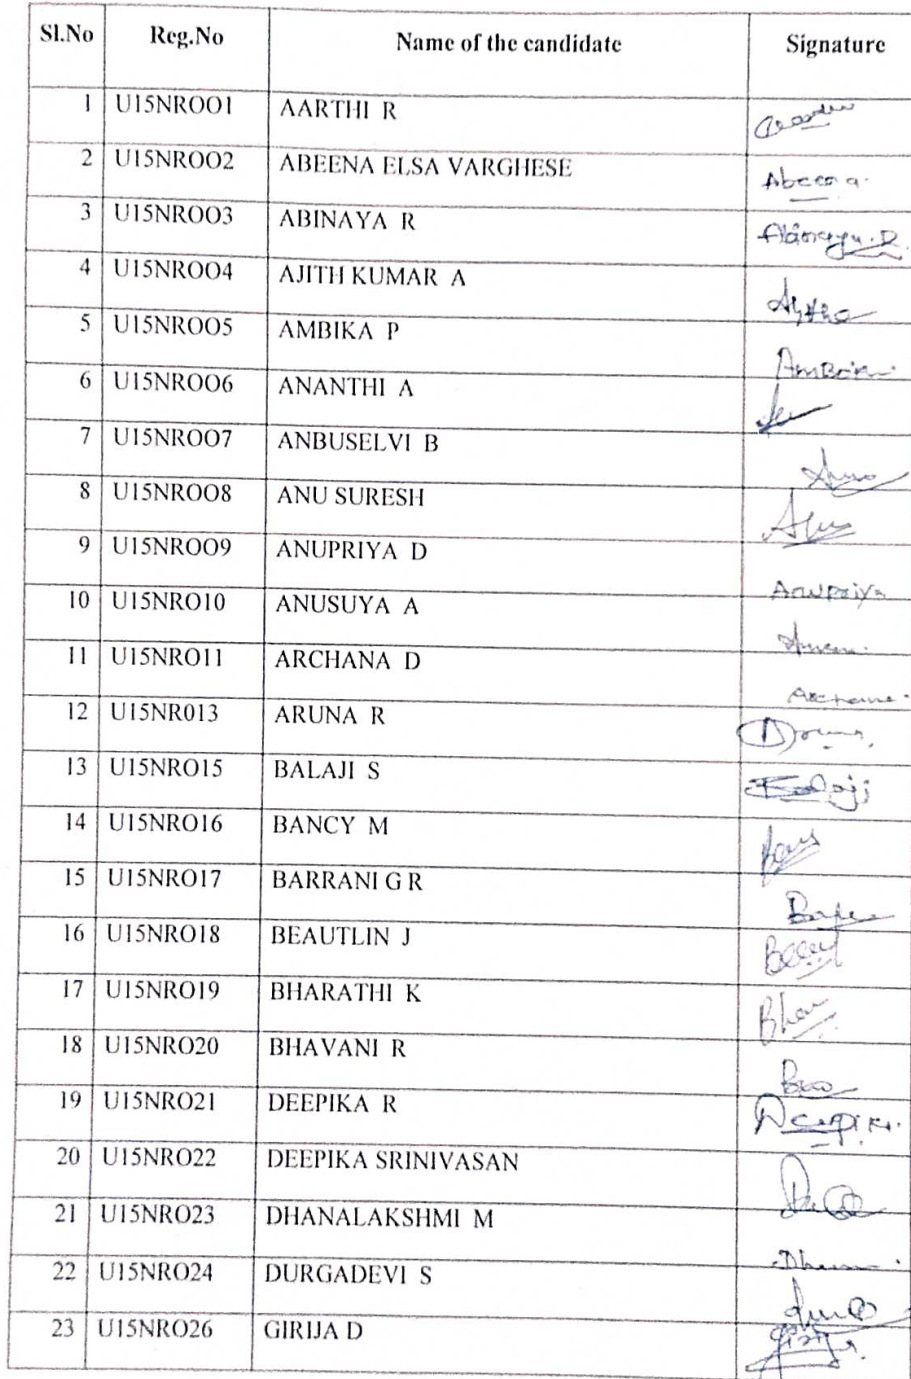 Sl.No Reg.No Name of the candidate Signature
1 U15NROO1 AARTHI R
2 U15NROO2 ABEENA ELSA VARGHESE Abeena.
3 U15NROO3 ABINAYA R Abinaya.R
4 U15NROO4 AJITH KUMAR A
5 U15NROO5 AMBIKA P Ambika
6 U15NROO6 ANANTHI A
7 U15NROO7 ANBUSELVI B
8 U15NROO8 ANU SURESH Anu
9 U15NROO9 ANUPRIYA D Anupriya
10 U15NRO10 ANUSUYA A
11 U15NRO11 ARCHANA D Archana.
12 U15NR013 ARUNA R
13 U15NRO15 BALAJI S Balaji
14 U15NRO16 BANCY M
15 U15NRO17 BARRANI G R
16 U15NRO18 BEAUTLIN J
17 U15NRO19 BHARATHI K
18 U15NRO20 BHAVANI R
19 U15NRO21 DEEPIKA R Deepika.
20 U15NRO22 DEEPIKA SRINIVASAN
21 U15NRO23 DHANALAKSHMI M
22 U15NRO24 DURGADEVI S
23 U15NRO26 GIRIJA D